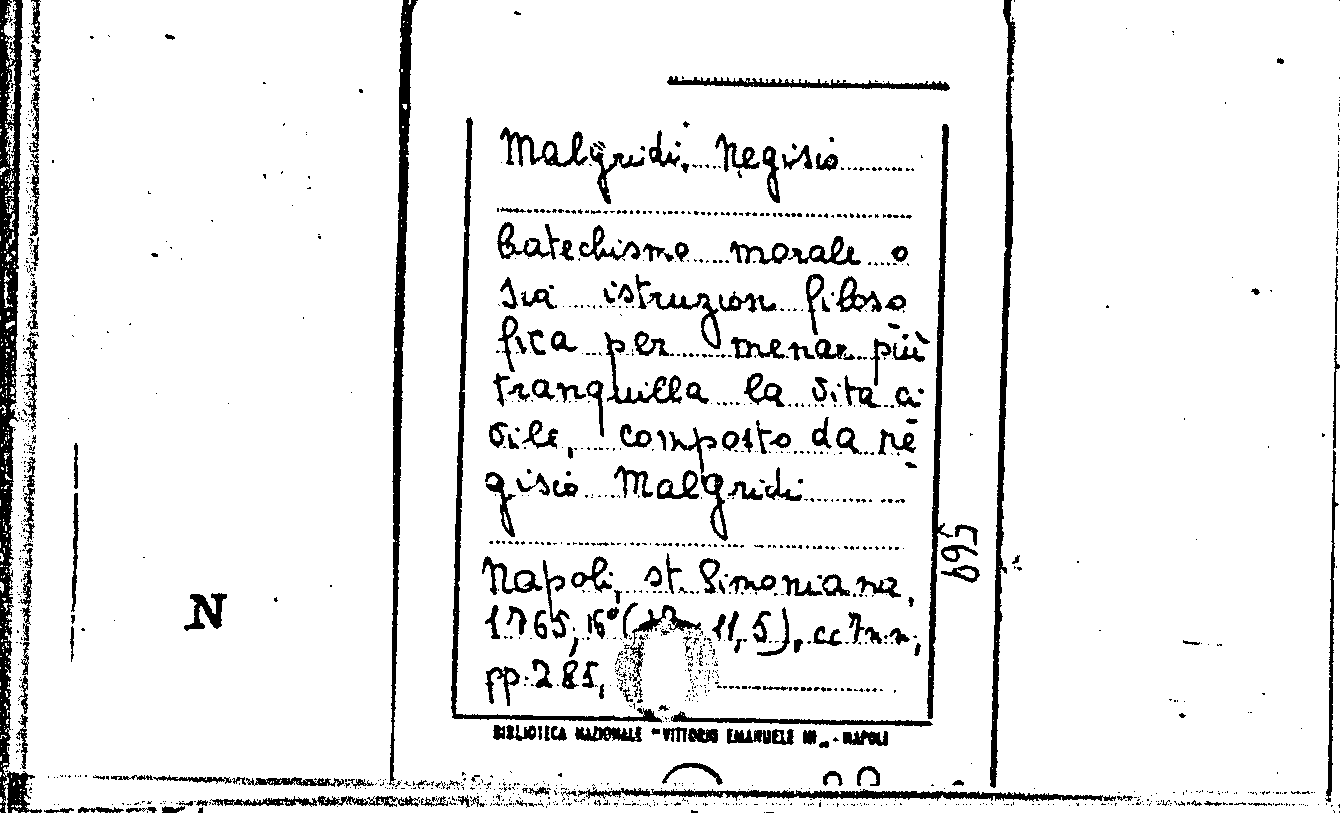 Malgridi, Negisio
Catechismo morale o
sia istruzion filoso
fica per menar più
tranquilla la vita ci
vile, composto da Ne
gisio Malgridi
Napoli, st. Simoniana,
1765, 16° ( 11,5), cc 7 nn,
pp. 285,
BIBLIOTECA NAZIONALE "VITTORIO EMANUELE III„ - NAPOLI
695
N